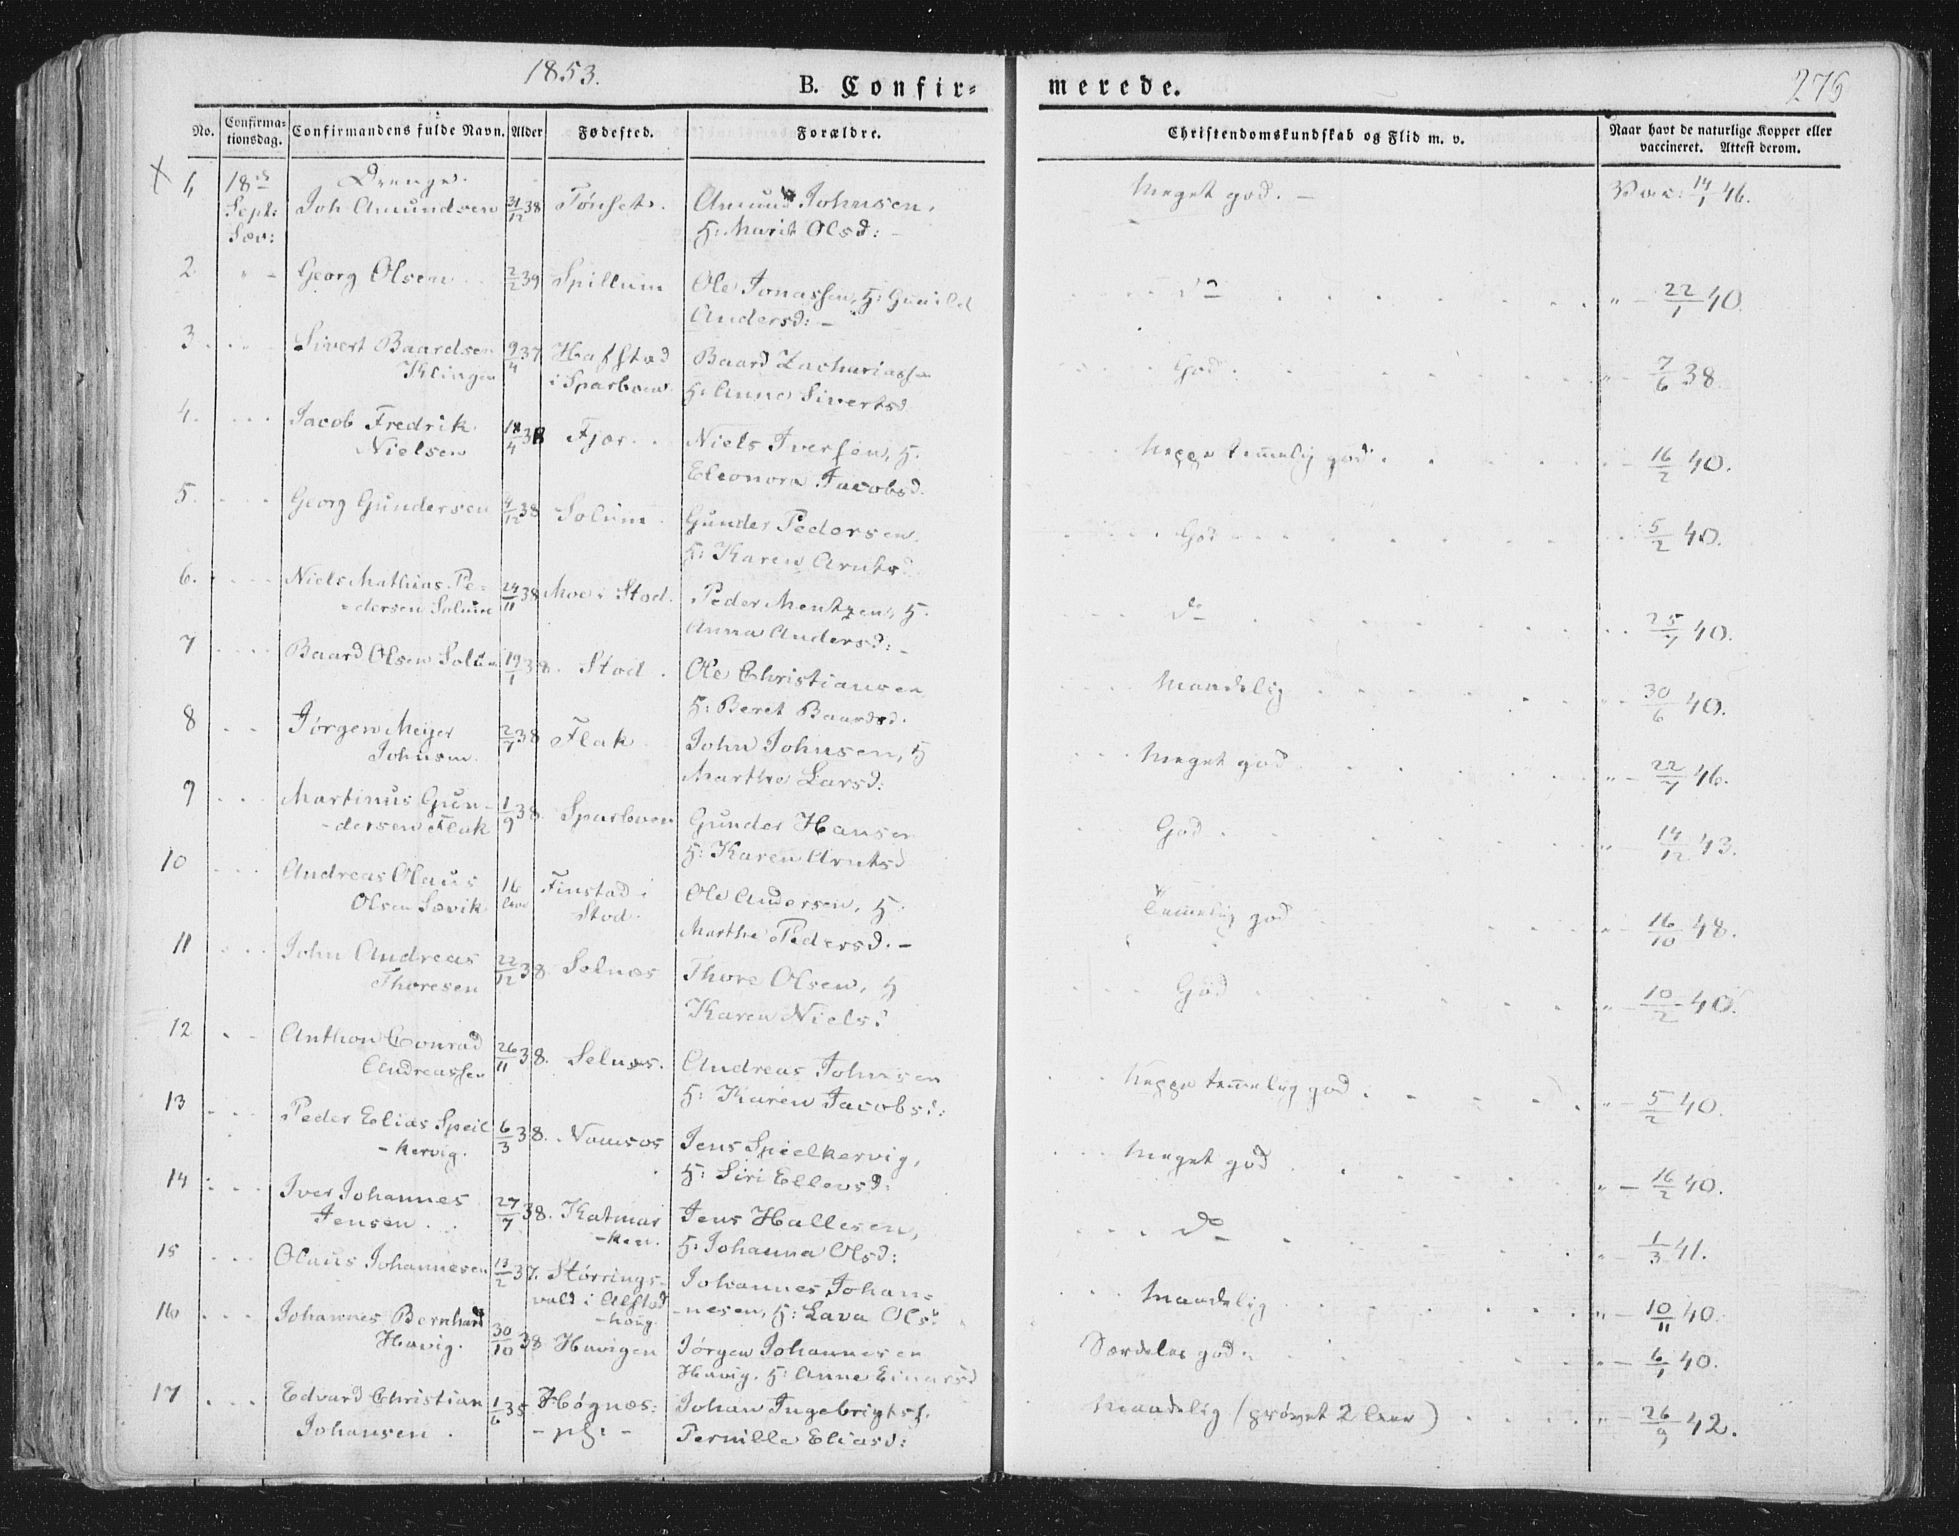 1853.
B. Confir-
merede.
276
No.
Confirma-
tionsdag.
Confirmandens fulde Navn.
Alder
Fødested.
Forældre.
Christendomskundskab og Flid m. v.
Naar havt de naturlige Kopper eller
vaccineret. Attest derom.
Drenge.
1, 18de Joh Amundsen 31/12 38 Tønset. Amund Johnsen, Meget god. — Vac: 14/1 46.
Sept: H: Marit Olsd: —
Sæv:
2 " - Georg Olsen 2/2 39 Spillum Ole Jonassen, H: Gunild do " — 22/1 40.
Andersd: —
3 Sivert Baardsen 9/4 37 Hafstad Baard Zachariassen God. " — 7/6 38.
Klingen i Sparboen H: Anne Sivertsd
4. Jacob Fredrik 18/4 38 Fjær. Niels Iversen, H. Neppe temmelig god. — 16/2 40.
Nielsen Eleonora Jacobsd.
5. Georg Gundersen 4/12 38 Solum Gunder Pedersen God — 5/2 40.
H: Karen Arntsd
6. Niels Mathias Pe= 24/11 38 Moe i Stod. Peder Mentzen, H. do 25/7 40.
=dersen Solum Anna Andersd: —
7 Baard Olsen Solum 19/1 38. Stod. Ole Christiansen Maadelig — 30/6 40.
H: Beret Baardsd.
8 Jørgen Meyer 2/7 38 Flak John Johnsen, H Meget god " — 22/7 46.
Johnsen. Marthe Larsd:
9 Martinus Gun- 1/9 38. Sparboen Gunder Hansen God. " — 14/12 43.
-dersen Flak H: Karen Arntsd
10 Andreas Olaus 16 Finstad i Ole Andersen, H: Temmelig god " — 16/10 48.
Olsen Sævik Aar Stod. Marthe Pedersd. —
11 John Andreas 22/12 38 Selnæs Thore Olsen, H God " — 10/2 40.
Thoresen Karen Nielsd
12 Anthon Conrad 26/11 38. Selnæs. Andreas Johnsen Neppe temmelig god " — 5/2 40.
Andreassen H: Karen Jacobsd:
13 Peder Elias Speil 6/3 38. Namsos Jens Speelkervig, Meget god " — 16/2 40.
-kervig. H: Siri Ellevsd:
14 Iver Johannes 27/7 38. Katmar Jens Hallesen, do " — 1/3 41.
Jensen -ken. H: Johanna Olsd:
15 Olaus Johannesen 13/2 37. Størrings- Johannes Johan= Maadelig " — 10/11 40.
vald i Alstad -nesen, H: Lava Olsd
-houg.
16 Johannes Bernhard 30/10 38 Havigen Jørgen Johannesen Særdeles god. " — 6/1 40.
Havig. Havig. H: Anne Einarsd
17 Edvard Christian 1/6 35 Høgnæs: Johan Ingebrigtsf. Maadelig (prøvet 2 Aar) " — 26/9 42.
Johansen. - pl: - Pernille Eliasd: